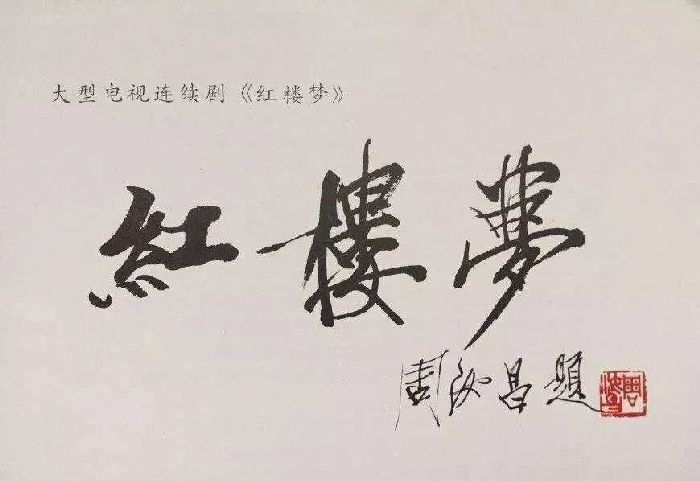 大型电视连续剧《红楼梦》
紅樓夢
周汝昌題